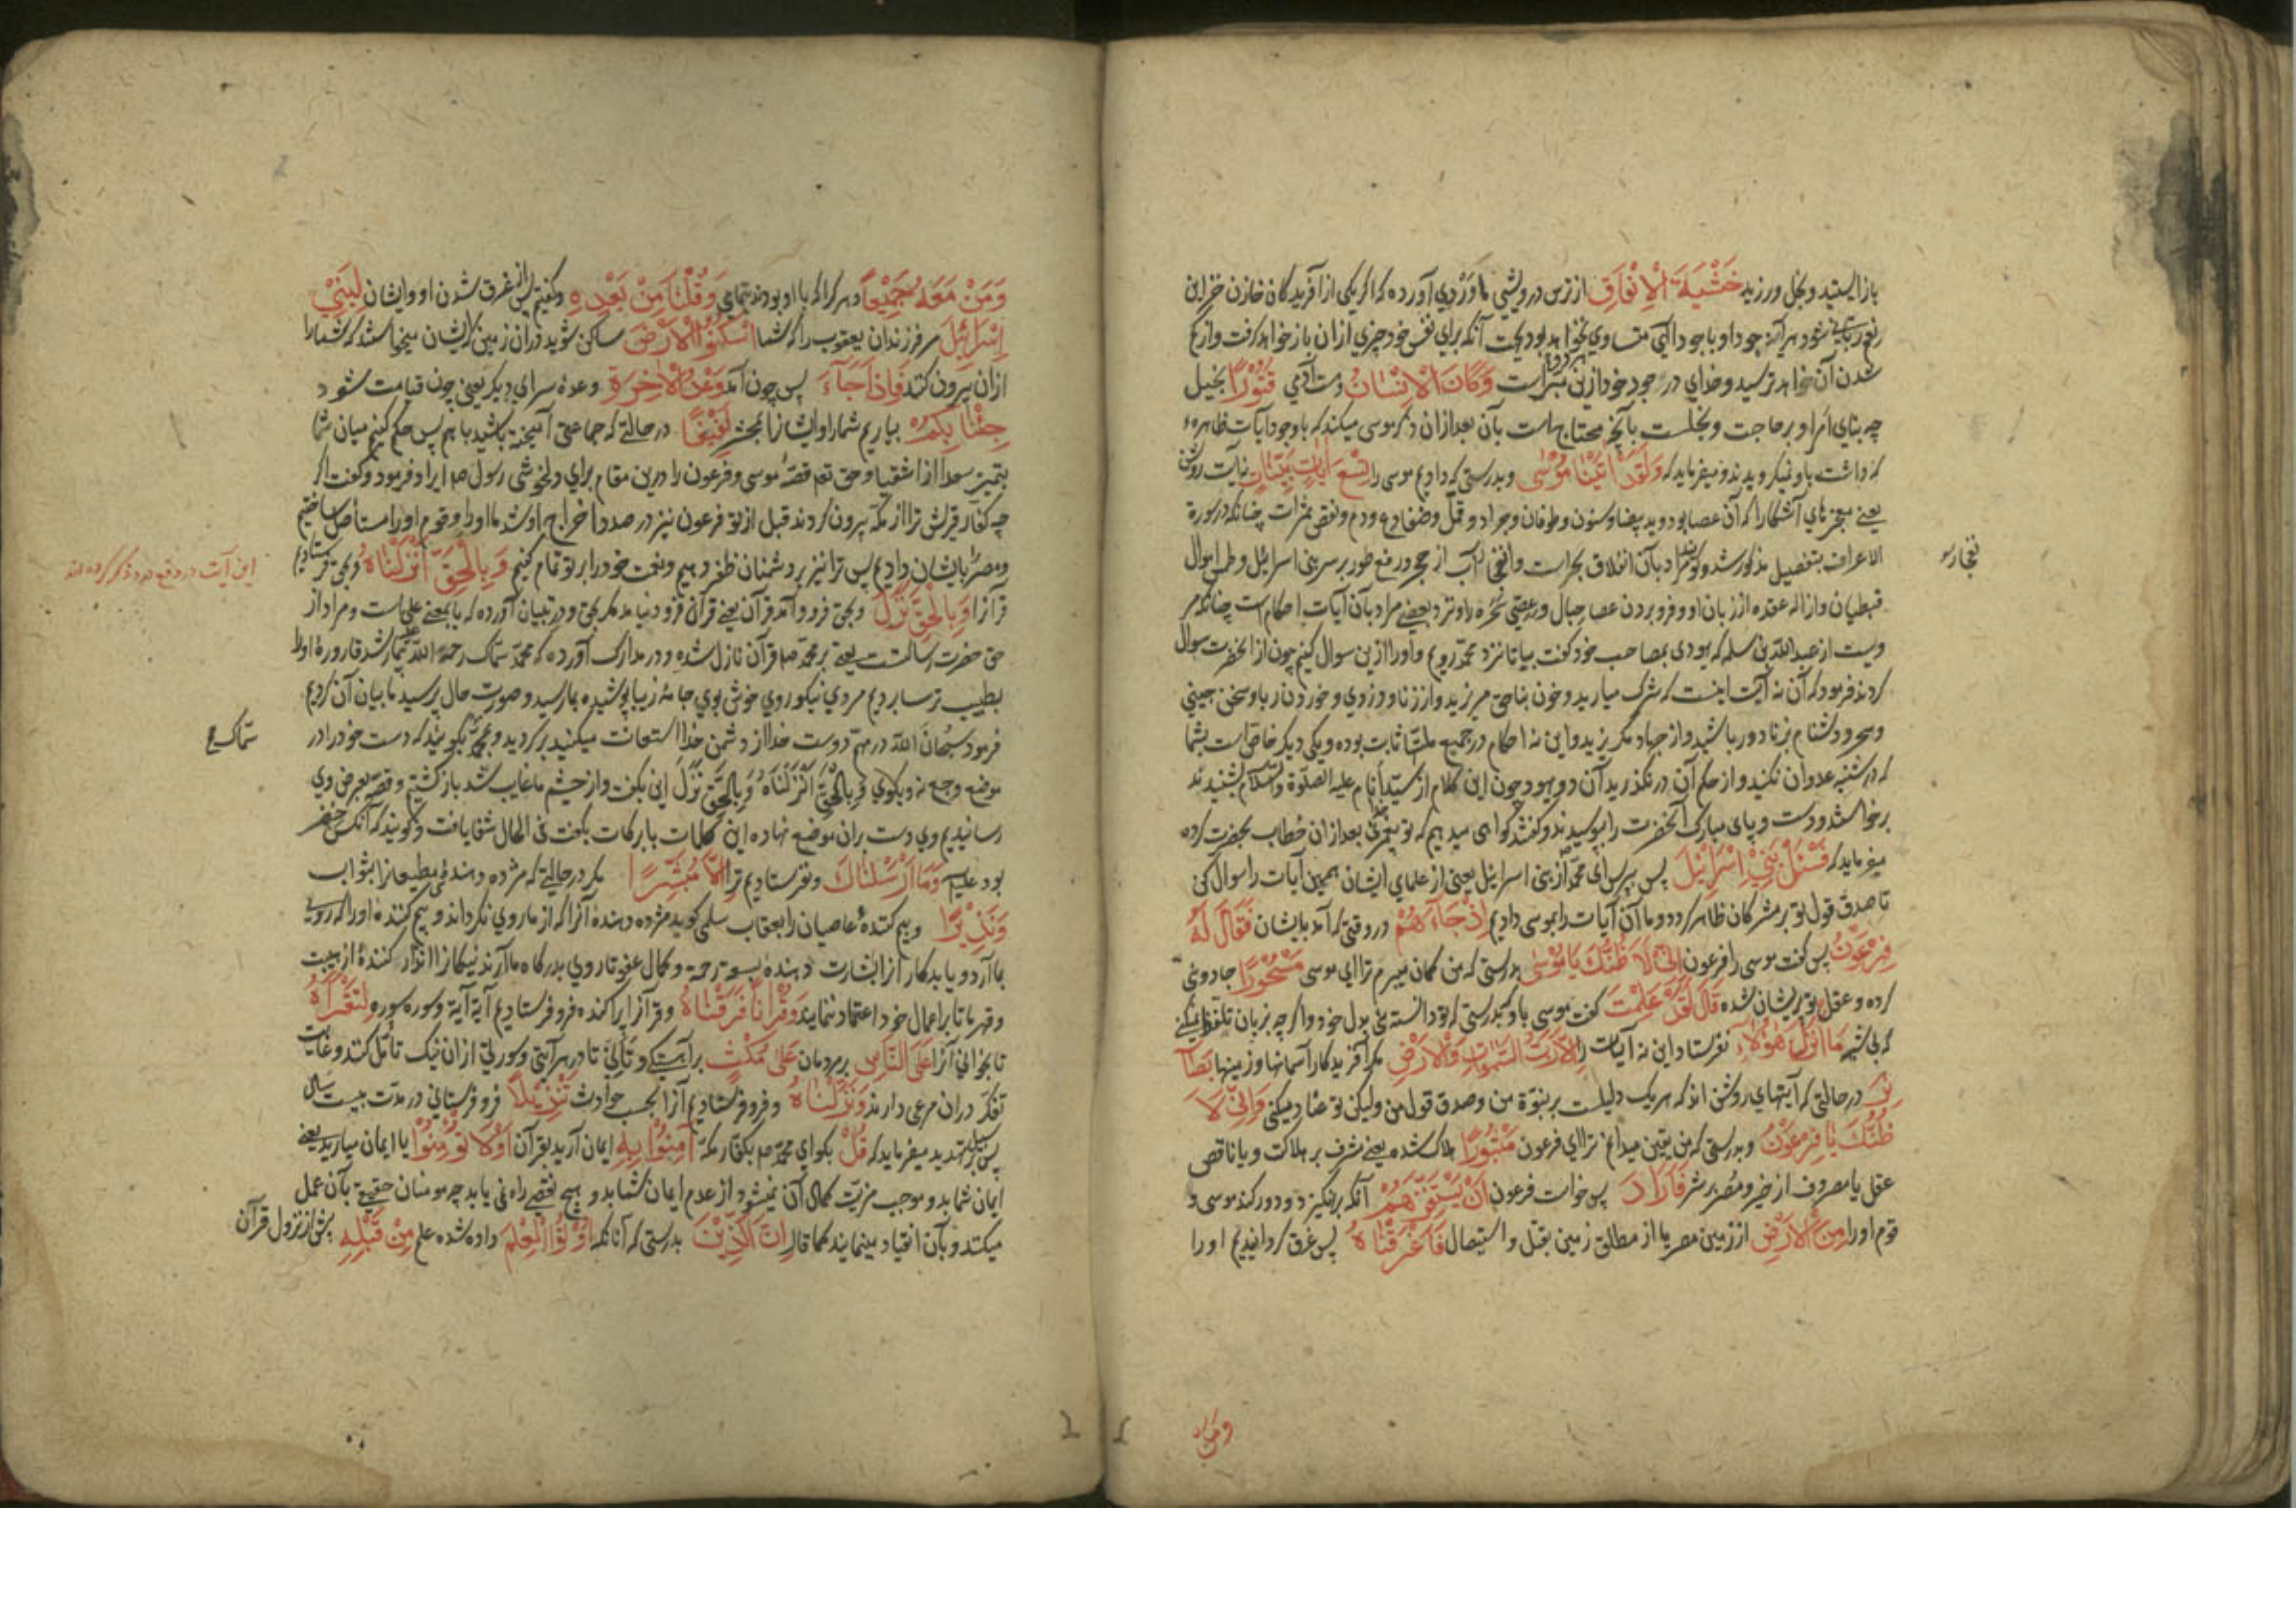 باز ایستید و بخل ورزید خَشْيَةَ الْاِنْفَاقِ از ترس درویشی ماوَرْدی آورده که اگر یکی از آفریدگان خازن خزاین
شود هر آینه جود او با جود الهی متساوی نخواهد بود بجهت آنکه برای نفس خود چیزی ازان باز خواهد گرفت و از
شدن آن خواهد ترسید و خدای در جود خود ازین هر دو مبراست وَكَانَ الْاِنْسَانُ و هست آدمی قَتُورًا بخیل
چه بنای امر او بر حاجت و بخلست بآنچه محتاج است بآن بعد ازان ذکر موسی میکند که با وجود آیات ظاهره
که داشت باو نمیگرویدند و میفرماید که وَلَقَدْ اٰتَيْنَا مُوسٰى و بدرستی که دادیم موسی را تِسْعَ اٰيَاتٍ بَيِّنَاتٍ نه آیت روشن
یعنی معجزهای آشکارا که آن عصا بود و ید بیضا و سنون و طوفان و جراد و قمل و ضفادع و دم و نقص ثمرات چنانکه در سورهٔ
الاعراف بتفصیل مذکور شد و گویند مراد بآن انفلاق بحراست و انفجار آب از حجر و رفع طور بر سر بنی اسرائیل و طمس اموال
قبطیان و ازالهٔ عقده از زبان او و فرو بردن عصا حبال و عصی سحره را و نزد بعضی مراد بآن آیات احکام است چنانکه مر
ویست از عبدالله بن سلمه که یهودی بمصاحب خود گفت بیا تا نزد محمد رویم و او را ازین سوال کنیم چون از آنحضرت سوال
کردند فرمود که آن نه آیت اینست که شرک میارید و خون بناحق مریزید و از زنا و دزدی و خوردن ربا و سخن چینی
و سحر و دشنام بزنا دور باشید و از جهاد مگریزید و این نه احکام در جمیع ملتها ثابت بوده و یکی دیگر خاص است بشما
که در شنبه عدوان نکنید و از حکم آن در نگذرید آن دو یهود چون این کلام از سید انام علیه الصلوة والسلام بشنیدند
برخواستند و دست و پای مبارک آنحضرت را ببوسیدند و گفتند گواهی میدهیم که تو پیغمبری بعد ازان خطاب بحضرت کرده
میفرماید که فَسْئَلْ بَنِيْ اِسْرَائِيْلَ پس بپرس ای محمد از بنی اسرائیل یعنی از علمای ایشان همین آیات را سوال کن
تا صدق قول تو بر مشرکان ظاهر گردد و ما آن آیات را بموسی دادیم اِذْ جَاءَهُمْ در وقتی که آمد بایشان فَقَالَ لَهُ
فِرْعَوْنُ پس گفت موسی را فرعون اِنِّيْ لَاَظُنُّكَ يَا مُوسٰى بدرستی که من گمان میبرم ترا ای موسی مَسْحُوْرًا جادوئی
کرده و عقل تو پریشان شده قَالَ لَقَدْ عَلِمْتَ گفت موسی باو که بدرستی که تو دانسته بدل خود و اگر چه بزبان تلفظ نمیکنی
که مَا اَنْزَلَ هٰؤُلَاءِ نفرستاد این نه آیات را اِلَّا رَبُّ السَّمٰوَاتِ وَالْاَرْضِ مگر آفریدگار آسمانها و زمینها بَصَآ
ئِرَ در حالتی که آیتهای روشن اند که هر یک دلیلست بر نبوة من و صدق قول من ولیکن تو عناد میکنی وَاِنِّيْ لَاَ
ظُنُّكَ يَا فِرْعَوْنُ و بدرستی که من یقین میدانم ترا ای فرعون مَثْبُوْرًا هلاک شده یعنی مشرف بر هلاکت و یا ناقص
عقل یا مصروف از خیر و مُصِر بر شر فَاَرَادَ پس خواست فرعون اَنْ يَسْتَفِزَّهُمْ آنکه برانگیزد و دور کند موسی و
قوم او را مِنَ الْاَرْضِ از زمین مصر یا از مطلق زمین بقتل و استیصال فَاَغْرَقْنَاهُ پس غرق گردانیدیم او را
ومن
وَمَنْ مَعَهُ جَمِيْعًا و هر کرا که با او بودند بتمامی وَقُلْنَا مِنْ بَعْدِهِ و گفتیم پس از غرق شدن او و ایشان لِبَنِيْ
اِسْرَائِيْلَ مر فرزندان یعقوب را که شما اسْكُنُوا الْاَرْضَ ساکن شوید دران زمین که ایشان میخواستند که شما را
ازان بیرون کنند فَاِذَا جَآءَ پس چون آمد وَعْدُ الْاٰخِرَةِ وعدهٔ سرای دیگر یعنی چون قیامت شود
جِئْنَا بِكُمْ بیاریم شما را و ایشانرا بمحشر لَفِيْفًا در حالتی که جماعتی آمیخته باشید باهم پس حکم کنیم میان شما
بتمییز سعدا از اشقیا و حق تع قصهٔ موسی و فرعون را درین مقام برای دلخوشی رسول ص ایراد فرمود و گفت اگر
چه کفار قریش ترا از مکه بیرون کردند قبل از تو فرعون نیز در صدد اخراج او شد ما او را و قوم او را مستأصل ساختیم
و مصر را بایشان دادیم پس ترا نیز بر دشمنان ظفر دهیم و نعمت خود را بر تو تمام کنیم وَبِالْحَقِّ اَنْزَلْنَاهُ و بحق فرستادیم
قرآنرا وَبِالْحَقِّ نَزَلَ و بحق فرود آمد قرآن یعنی قرآن فرود نیامد مگر بحق و در تبیان آورده که با بمعنی علی است و مراد از
حق حضرت رسالتست یعنی بر محمد ص قرآن نازل شده و در مدارک آورده که محمد سماک رحمة الله علیه بیمار شد قارورهٔ او را
بطبیب ترسا بردیم مردی نیکو روی خوش بوی جامهٔ زیبا پوشیده بما رسید و صورت حال پرسید ما بیان آن کردیم
فرمود سبحان الله در مهم دوست خدا از دشمن خدا استعانت میکنید برگردید و بمحمد بگویید که دست خود را در
موضع وجع نه و بگوی وَبِالْحَقِّ اَنْزَلْنَاهُ وَبِالْحَقِّ نَزَلَ این بگفت و از چشم ما غایب شد بازگشتیم و قصه بعرض وی
رسانیدیم وی دست بران موضع نهاده این کلمات با برکات بگفت فی الحال شفا یافت و گویند که آنکس خضر
بود علیه وَمَا اَرْسَلْنَاكَ و نفرستادیم ترا اِلَّا مُبَشِّرًا مگر در حالتی که مژده دهندهٔ مطیعانرا بثواب
وَنَذِيْرًا و بیم کنندهٔ عاصیان را بعقاب سلمی گوید مژده دهندهٔ آنرا که از ما روی نگرداند و بیم کننده او را که روی
بما آرد و یا بدکارانرا بشارت دهندهٔ بسعهٔ رحمت و کمال عفو تا روی بدرگاه ما آرند نیکانرا انذار کنندهٔ از هیبت
و قهر ما تا بر اعمال خود اعتماد ننمایند وَقُرْاٰنًا فَرَقْنَاهُ و قرآنرا پراکنده فرو فرستادیم آیه آیه و سوره سوره لِتَقْرَاَهُ
تا بخوانی آنرا عَلَى النَّاسِ بر مردمان عَلٰى مُكْثٍ بر آهستگی و تأنی تا در هر آیتی و سورتی ازان نیک تأمل کنند و غایت
تفکر دران مرعی دارند وَنَزَّلْنَاهُ و فرو فرستادیم آنرا بحسب حوادث تَنْزِيْلًا فرو فرستادنی در مدت بیست سال
پس بر سبیل تهدید میفرماید که قُلْ بگو ای محمد ص بکفار مکه اٰمِنُوْا بِهِ ایمان آرید بقرآن اَوْ لَا تُؤْمِنُوْا یا ایمان میارید یعنی
ایمان شما بدو موجب مزیت کمال آن نمیشود و از عدم ایمان شما بدو هیچ نقصی راه نمی یابد چه مومنان حقیقی بآن عمل
میکنند و بآن انقیاد مینمایند کما قال اِنَّ الَّذِيْنَ بدرستی که آنانکه اُوْتُوا الْعِلْمَ داده شده علم مِنْ قَبْلِهِ پیش از نزول قرآن
این آیت در دفع درد ذکر کرده اند
سماک